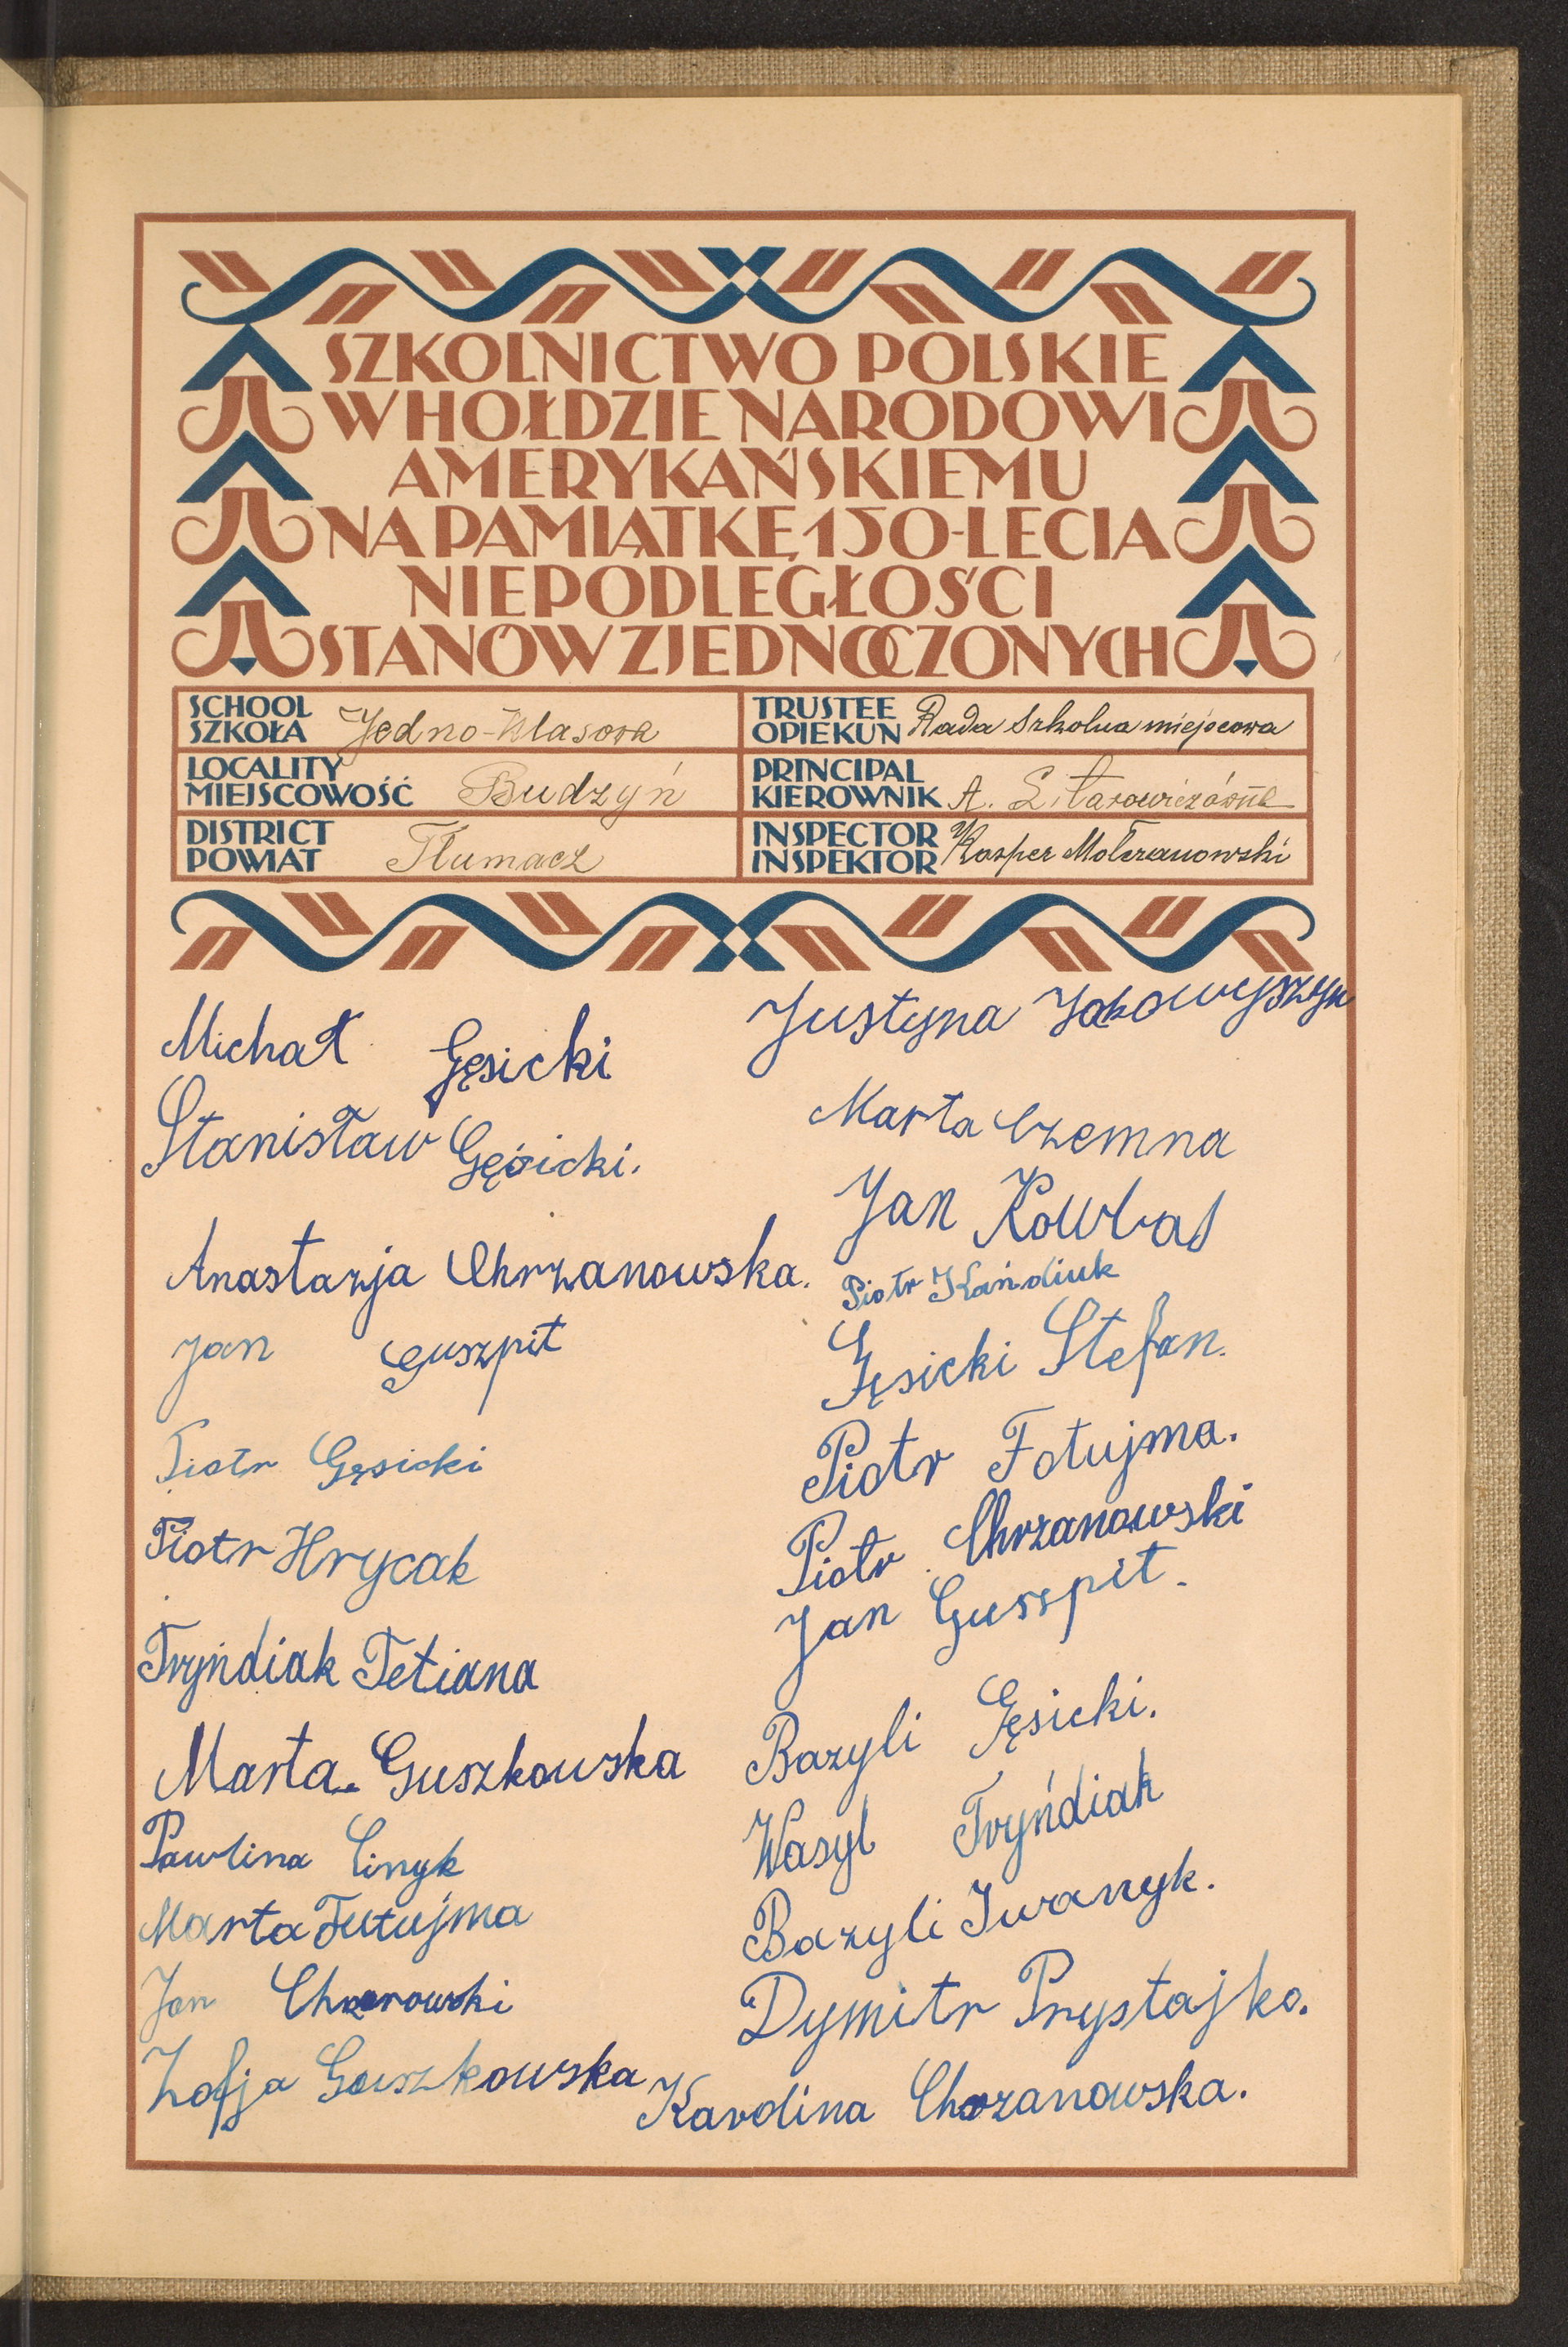 SZKOLNICTWO POLSKIE
W HOŁDZIE NARODOWI
AMERYKAŃSKIEMU
NA PAMIĄTKĘ 150-LECIA
NIEPODLEGŁOŚCI
STANÓW ZJEDNOCZONYCH
SCHOOL
SZKOŁA Jedno-klasowa
LOCALITY
MIEJSCOWOŚĆ Budzyń
DISTRICT
POWIAT Tłumacz
TRUSTEE
OPIEKUN Rada Szkolna miejscowa
PRINCIPAL
KIEROWNIK A.
INSPECTOR
INSPEKTOR Kasper Mołczanowski
Michał Gęsicki
Stanisław Gęsicki.
Anastazja Chrzanowska.
Jan Guszpit
Piotr Gęsicki
Piotr Hrycak
Tryńdiak Tetiana
Marta Guszkowska
Pawlina Linyk
Marta Futujma
Jan
Zofja Guszkowska
Justyna Jakowyszyn
Marta Czemna
Jan Kowbas
Piotr Kańdiuk
Gęsicki Stefan.
Piotr Fotujma.
Piotr Chrzanowski
Jan Guszpit.
Bazyli Gęsicki.
Wasyl Tryńdiak
Bazyli Iwanyk.
Dymitr Prystajko.
Karolina Chrzanowska.